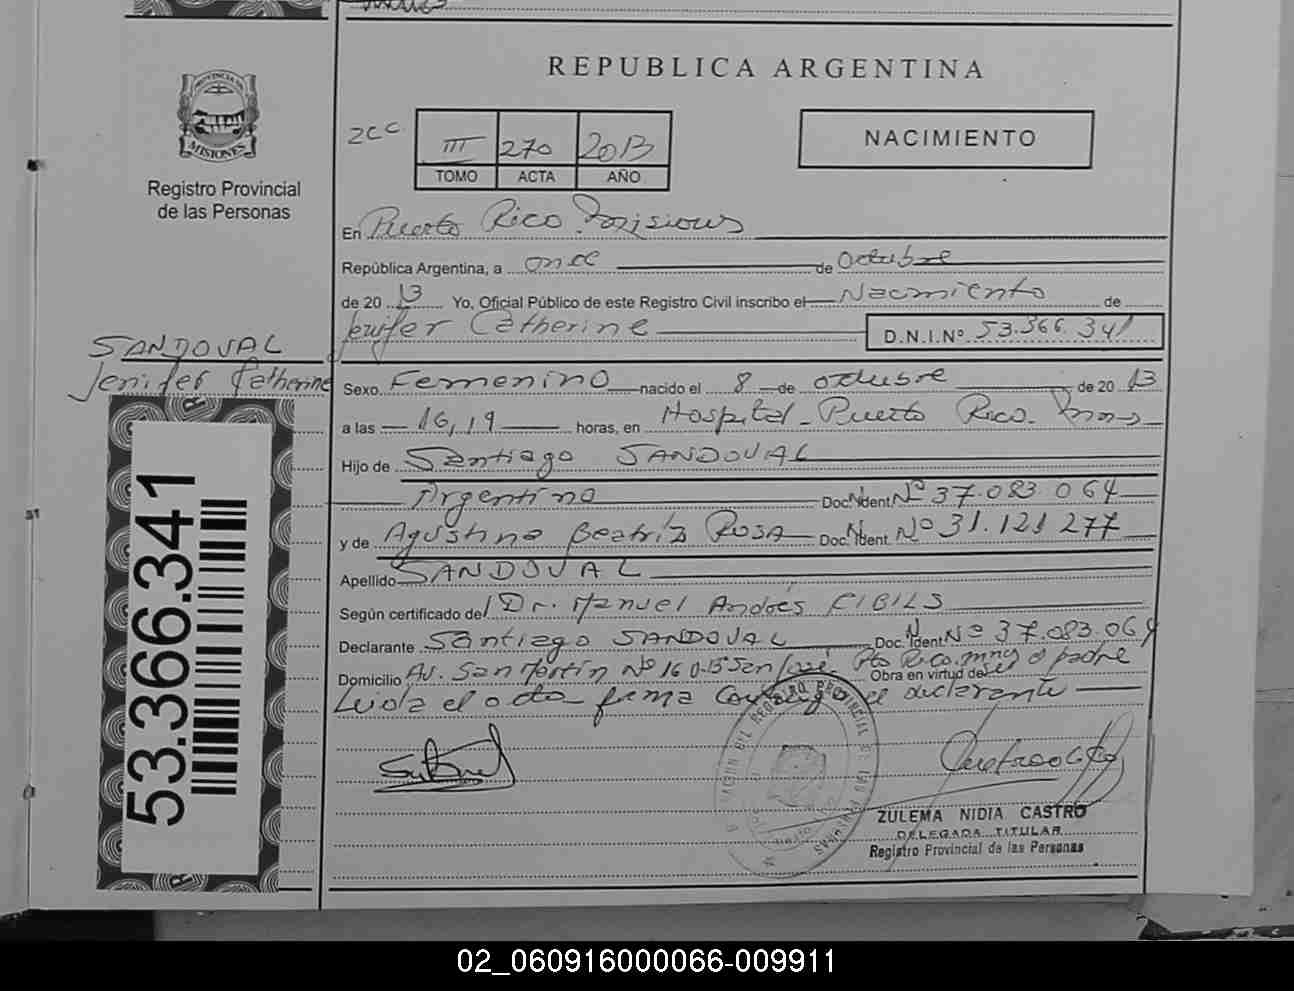 REPUBLICA ARGENTINA
PROVINCIA DE
MISIONES
Registro Provincial
de las Personas
2CC
III 270 2013
TOMO ACTA AÑO
NACIMIENTO
En Puerto Rico Misiones
República Argentina, a once de Octubre
de 2013 Yo, Oficial Público de este Registro Civil inscribo el Nacimiento de
Jenifer Catherine D.N.I.Nº 53.366.341
SANDOVAL
Jenifer Catherine
Sexo Femenino nacido el 8 de octubre de 2013
a las 16,19 horas, en Hospital Puerto Rico. Mnes
Hijo de Santiago SANDOVAL
Argentino Doc. Ident. Nº 37.083.064
y de Agustina Beatriz ROSA Doc. Ident. Nº 31.121.277
Apellido SANDOVAL
Según certificado de Dr. Manuel Andrés FIBILS
Declarante Santiago SANDOVAL Doc. Ident. Nº 37.083.064
Domicilio Av. San Martín Nº 160 Bº San José Pto Rico. mnes
Obra en virtud de el padre
Leida el acta firma conmigo el declarante
53.366.341
REGISTRO PROVINCIAL DE LAS PERSONAS
ZULEMA NIDIA CASTRO
DELEGADA TITULAR
Registro Provincial de las Personas
02_060916000066-009911